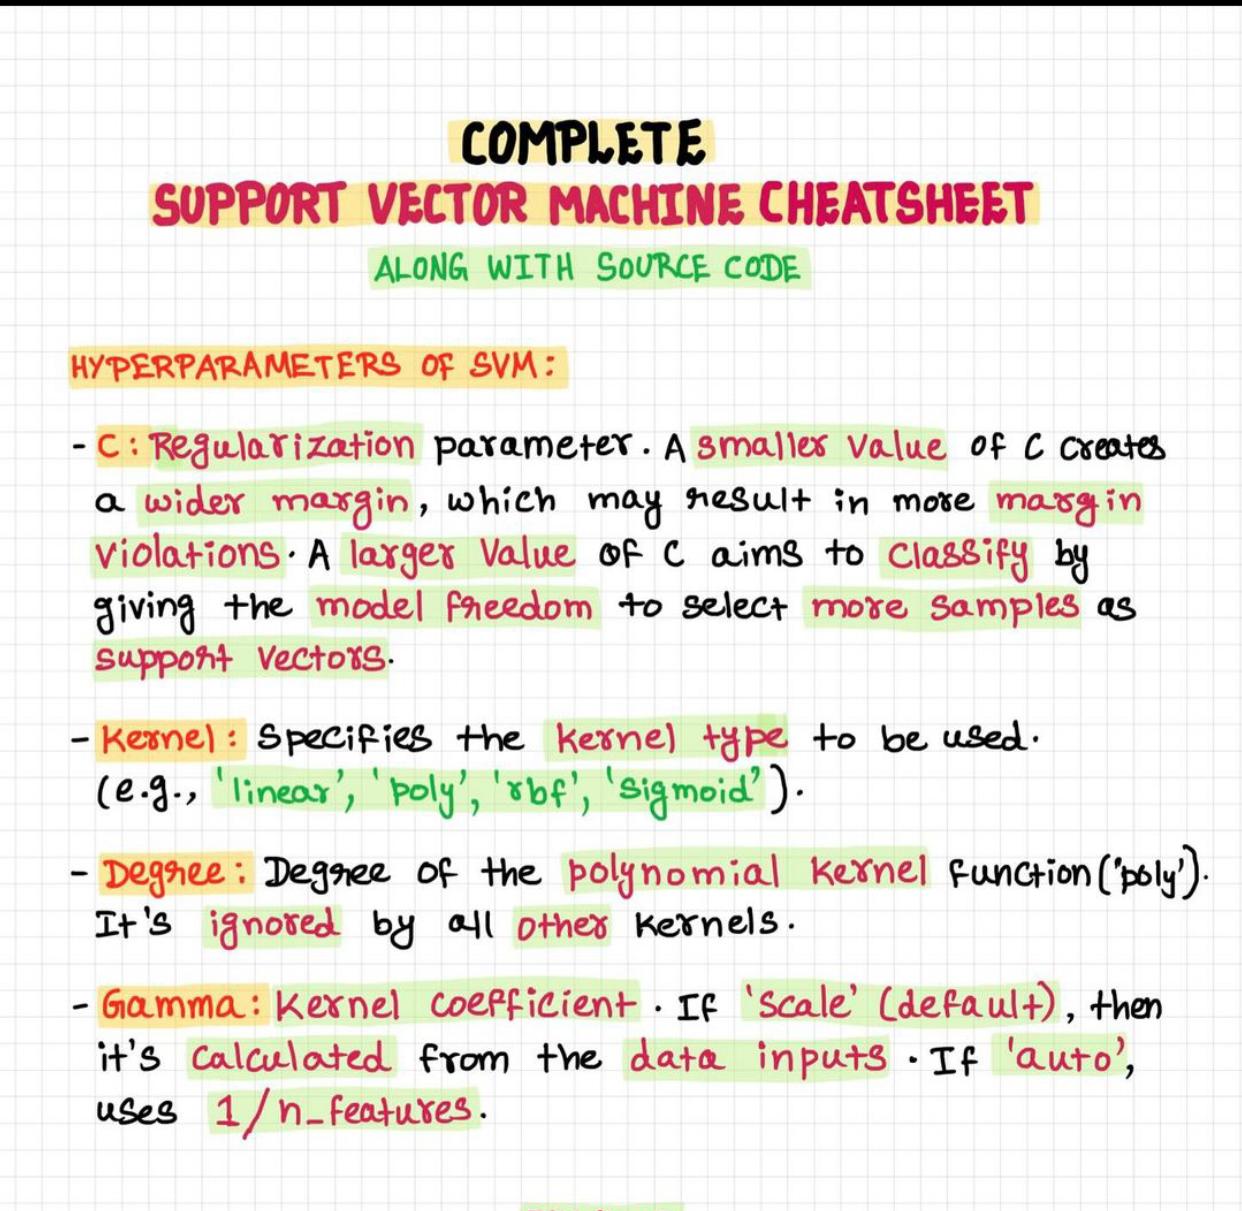 COMPLETE
SUPPORT VECTOR MACHINE CHEATSHEET
ALONG WITH SOURCE CODE
HYPERPARAMETERS OF SVM:
- C: Regularization parameter. A smaller value of C creates
a wider margin, which may result in more margin
violations. A larger value of C aims to classify by
giving the model freedom to select more samples as
support vectors.
- Kernel: Specifies the kernel type to be used.
(e.g., 'linear', 'poly', 'rbf', 'sigmoid').
- Degree: Degree of the polynomial kernel function('poly').
It's ignored by all other kernels.
- Gamma: Kernel coefficient. If 'scale' (default), then
it's calculated from the data inputs. If 'auto',
uses 1/n_features.